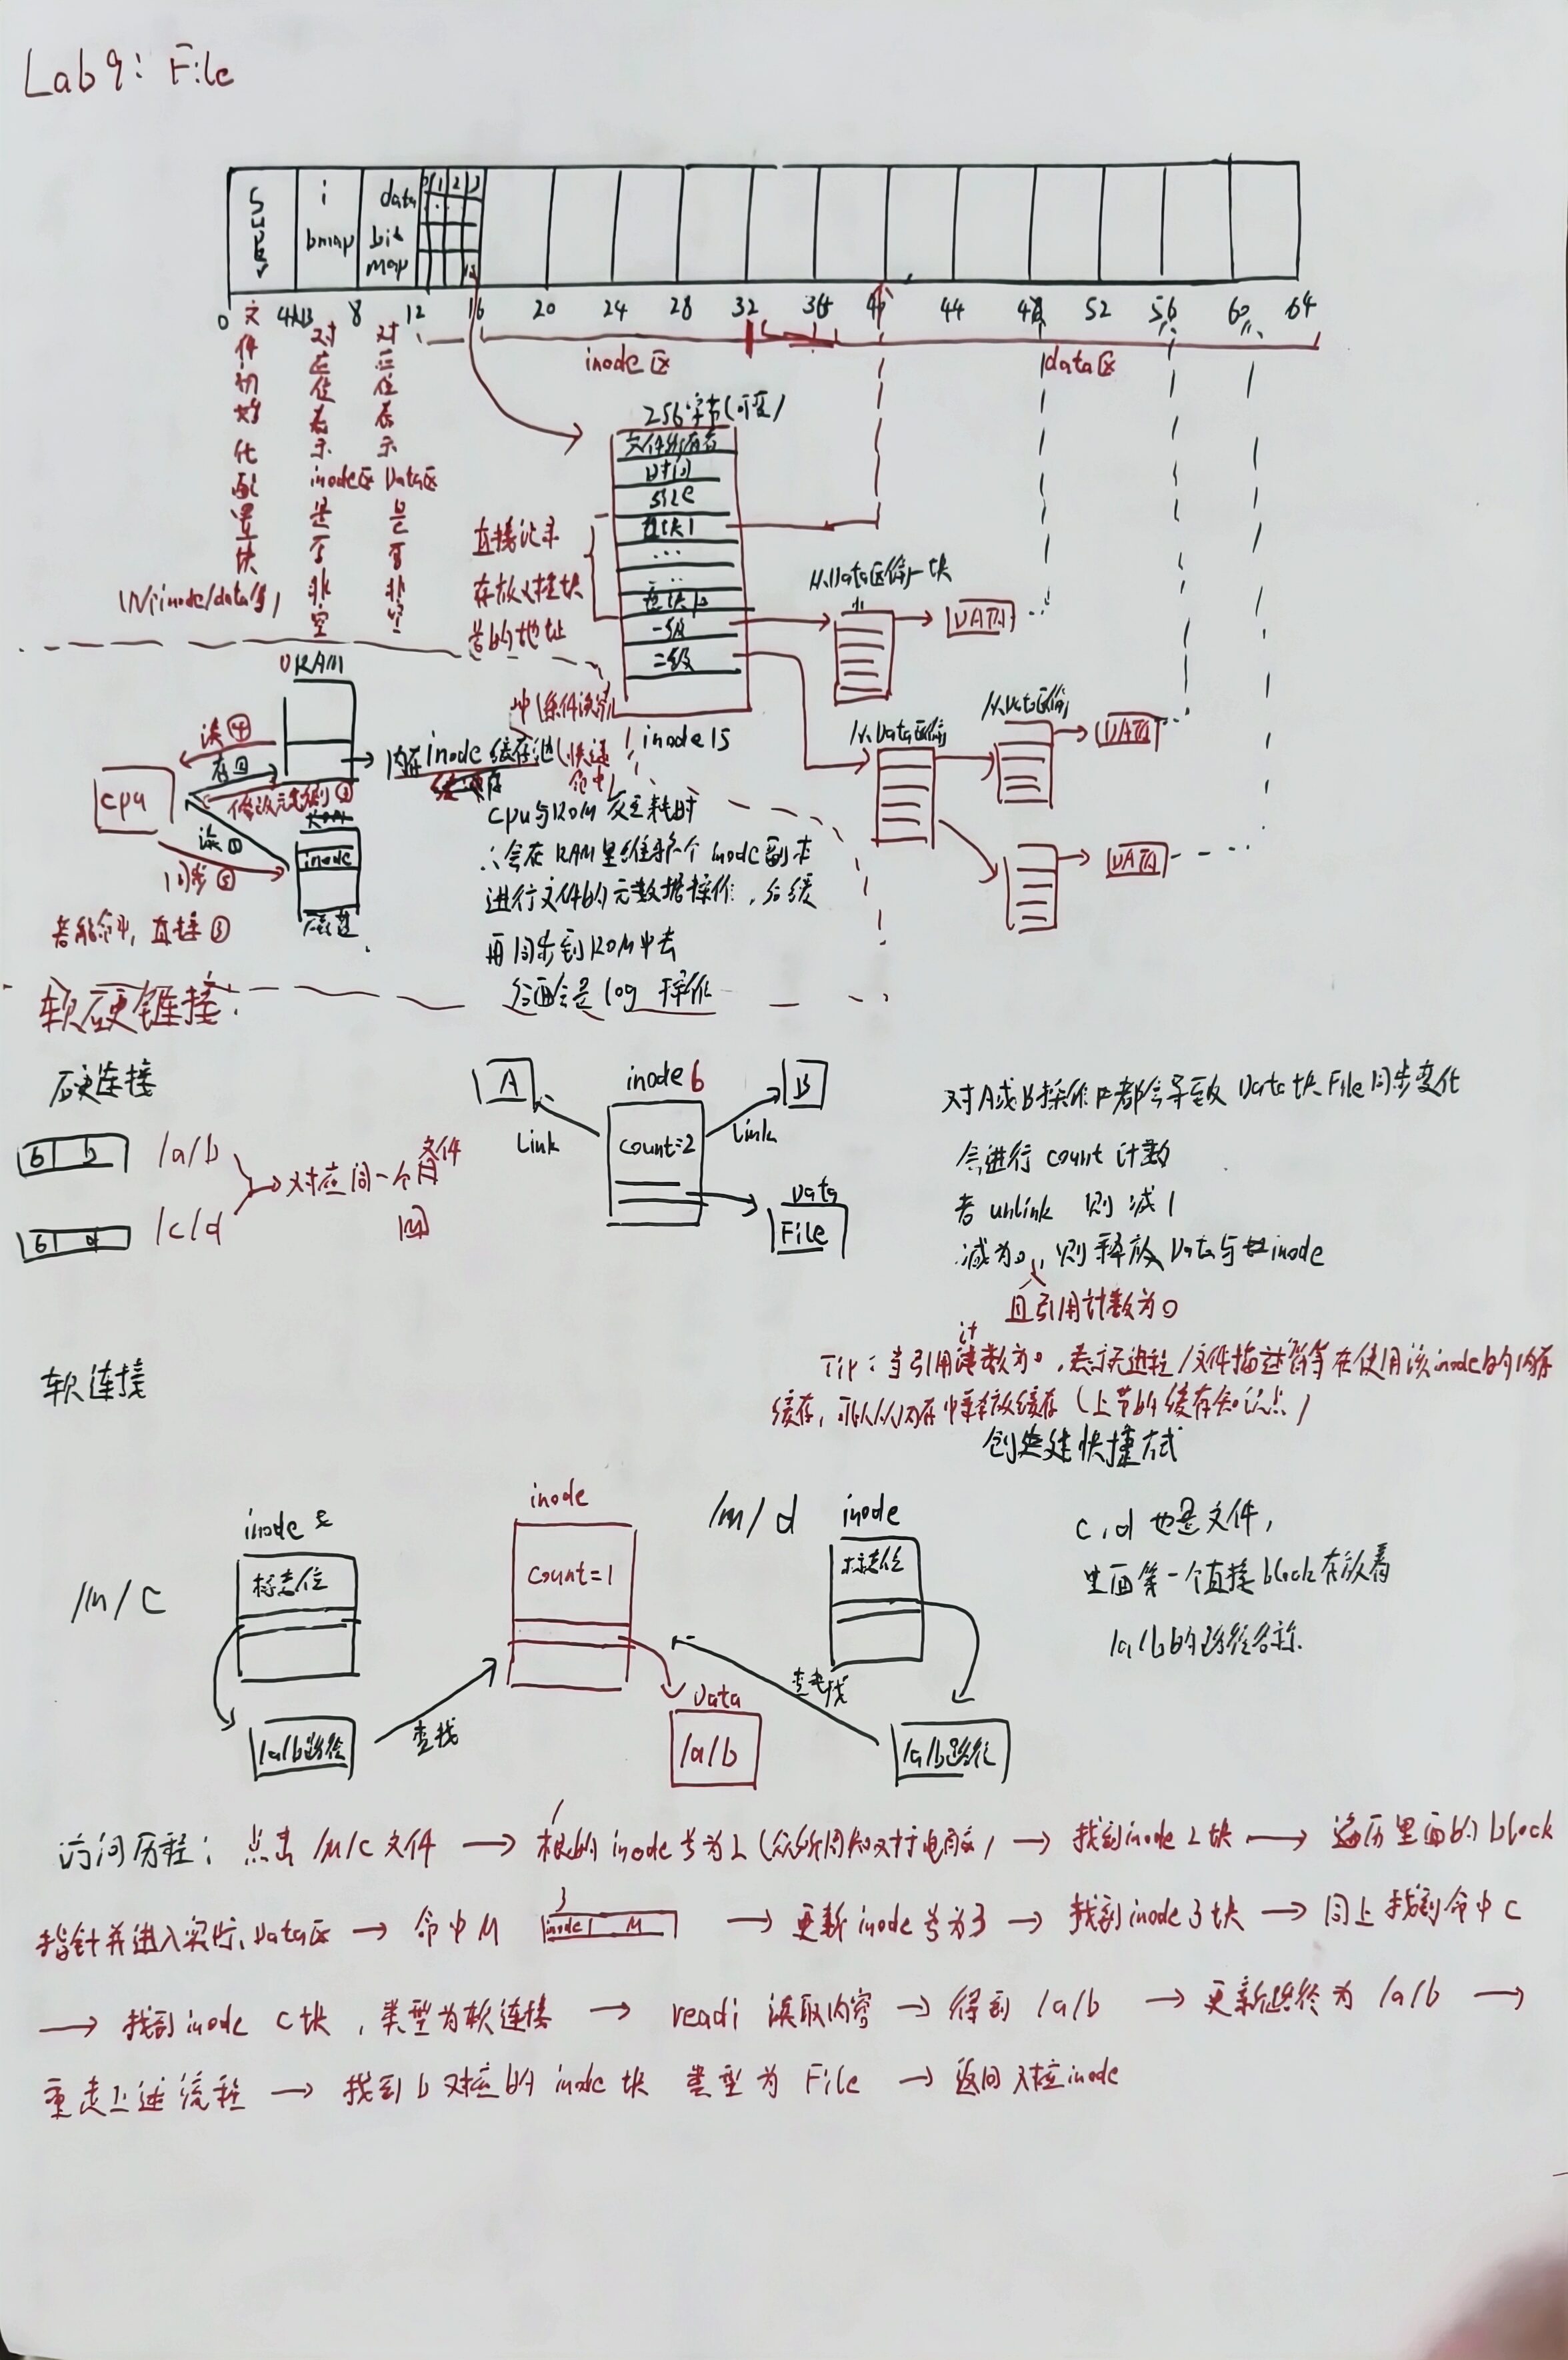 Lab9: File
super
i bmap
data bit map
0 1 2 3
15
0 4KB 8 12 16 20 24 28 32 36 40 44 48 52 56 60 64
文件初始化配置块
对应位表示inode区是否非空
对应位表示Data区是否非空
inode区
data区
256字节(可变)
文件所有者
时间
size
直接块1
...
...
直接块12
一级
二级
inode15
直接记录
存放文件块
号的地址
从Data区偷一块
DATA
从Data区偷
从Data区偷
DATA
DATA
RAM
cpu
读④
存②
修改元数据③
读①
同步⑤
inode
磁盘
若能命中,直接③
内存inode缓存池
cpu与ROM交互耗时
∴会在RAM里维护个inode副本
进行文件的元数据操作,后续
再同步到ROM中去
后面会是log操作
软硬链接:
硬连接
6 b /a/b
6 d /c/d
对应同一个文件
A
Link
inode 6
count=2
B
Link
Data
File
对A或B操作都会导致Data块File同步变化
会进行count计数
若unlink 则减1
减为0,则释放Data与inode
且引用计数为0
Tip:当引用计数为0,表示无进程/文件描述符等在使用该inode的内存
缓存,可以从内存中释放缓存(上节的缓存知识点)
软连接
创建快捷方式
/m/c
inode
标志位
/a/b路径
查找
inode
count=1
Data
/a/b
/m/d
inode
标志位
查找
/a/b路径
c,d也是文件,
里面第一个直接block存放着
/a/b的路径名称.
访问历程: 点击/m/c文件 → 根的inode号为2(众所周知对于电脑) → 找到inode 2块 → 遍历里面的block
指针并进入实际Data区 → 命中M 3 inode M → 更新inode号为3 → 找到inode 3块 → 同上找到命中C
→ 找到inode C块,类型为软连接 → readi 读取内容 → 得到/a/b → 更新路径为/a/b →
重走上述流程 → 找到b对应的inode块 类型为File → 返回对应inode